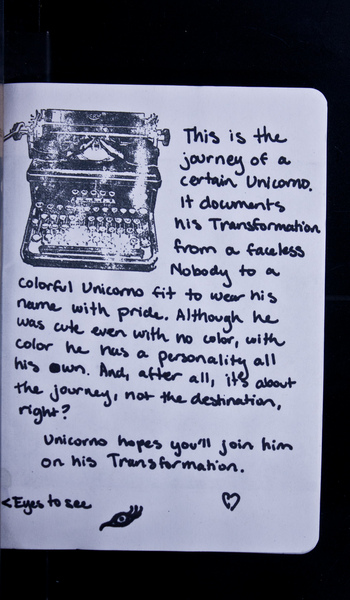 This is the
journey of a
certain Unicorno.
It documents
his Transformation
from a faceless
Nobody to a
colorful Unicorno fit to wear his
name with pride. Although he
was cute even with no color, with
color he has a personality all
his own. And, after all, it's about
the journey, not the destination,
right?
Unicorno hopes you'll join him
on his Transformation.
<Eyes to see